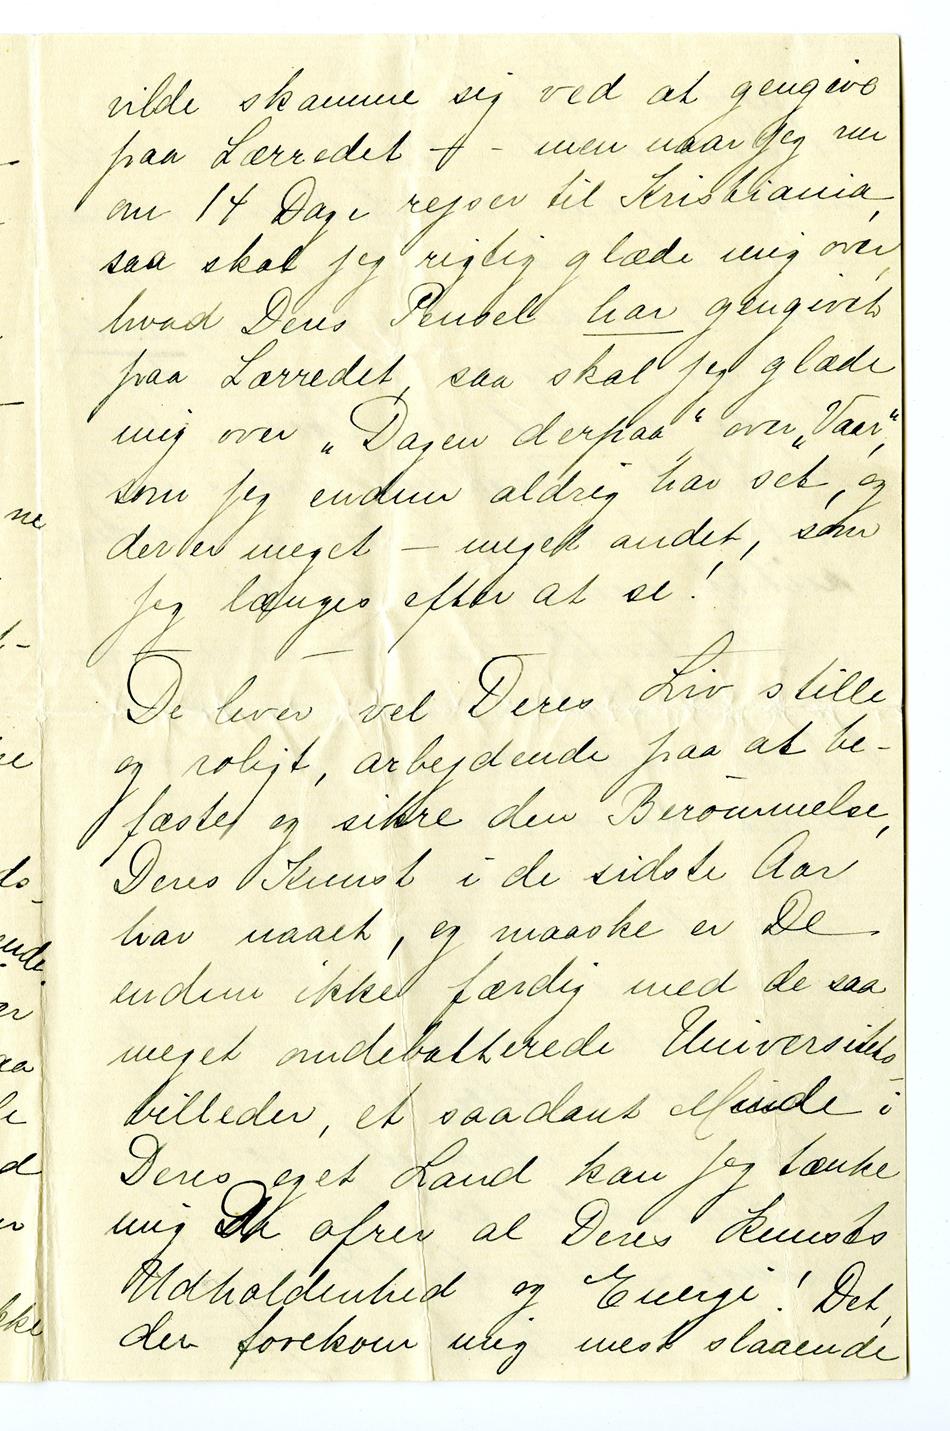 vilde skamme sig ved at gengive
paa Lærredet – - men naar jeg nu
om 14 Dage rejser til Kristiania,
saa skal jeg rigtig glæde mig over,
hvad Deres Pensel har gengivet
paa Lærredet, saa skal jeg glæde
mig over „Dagen derpaa“ over „Vaar“,
som jeg endnu aldrig har set, og
der er meget – meget andet, som
jeg længes efter at se!
De lever vel Deres Liv stille
og roligt, arbejdende paa at be-
fæste og sikre den Berømmelse,
Deres Kunst i de sidste Aar
har naaet, og maaske er De
endnu ikke færdig med de saa
meget omdebatterede Universitets-
billeder, et saadant Minde i
Deres eget Land kan jeg tænke
mig De ofrer al Deres Kunsts
Udholdenhed og Energi! Det,
der forekom mig mest slaaende